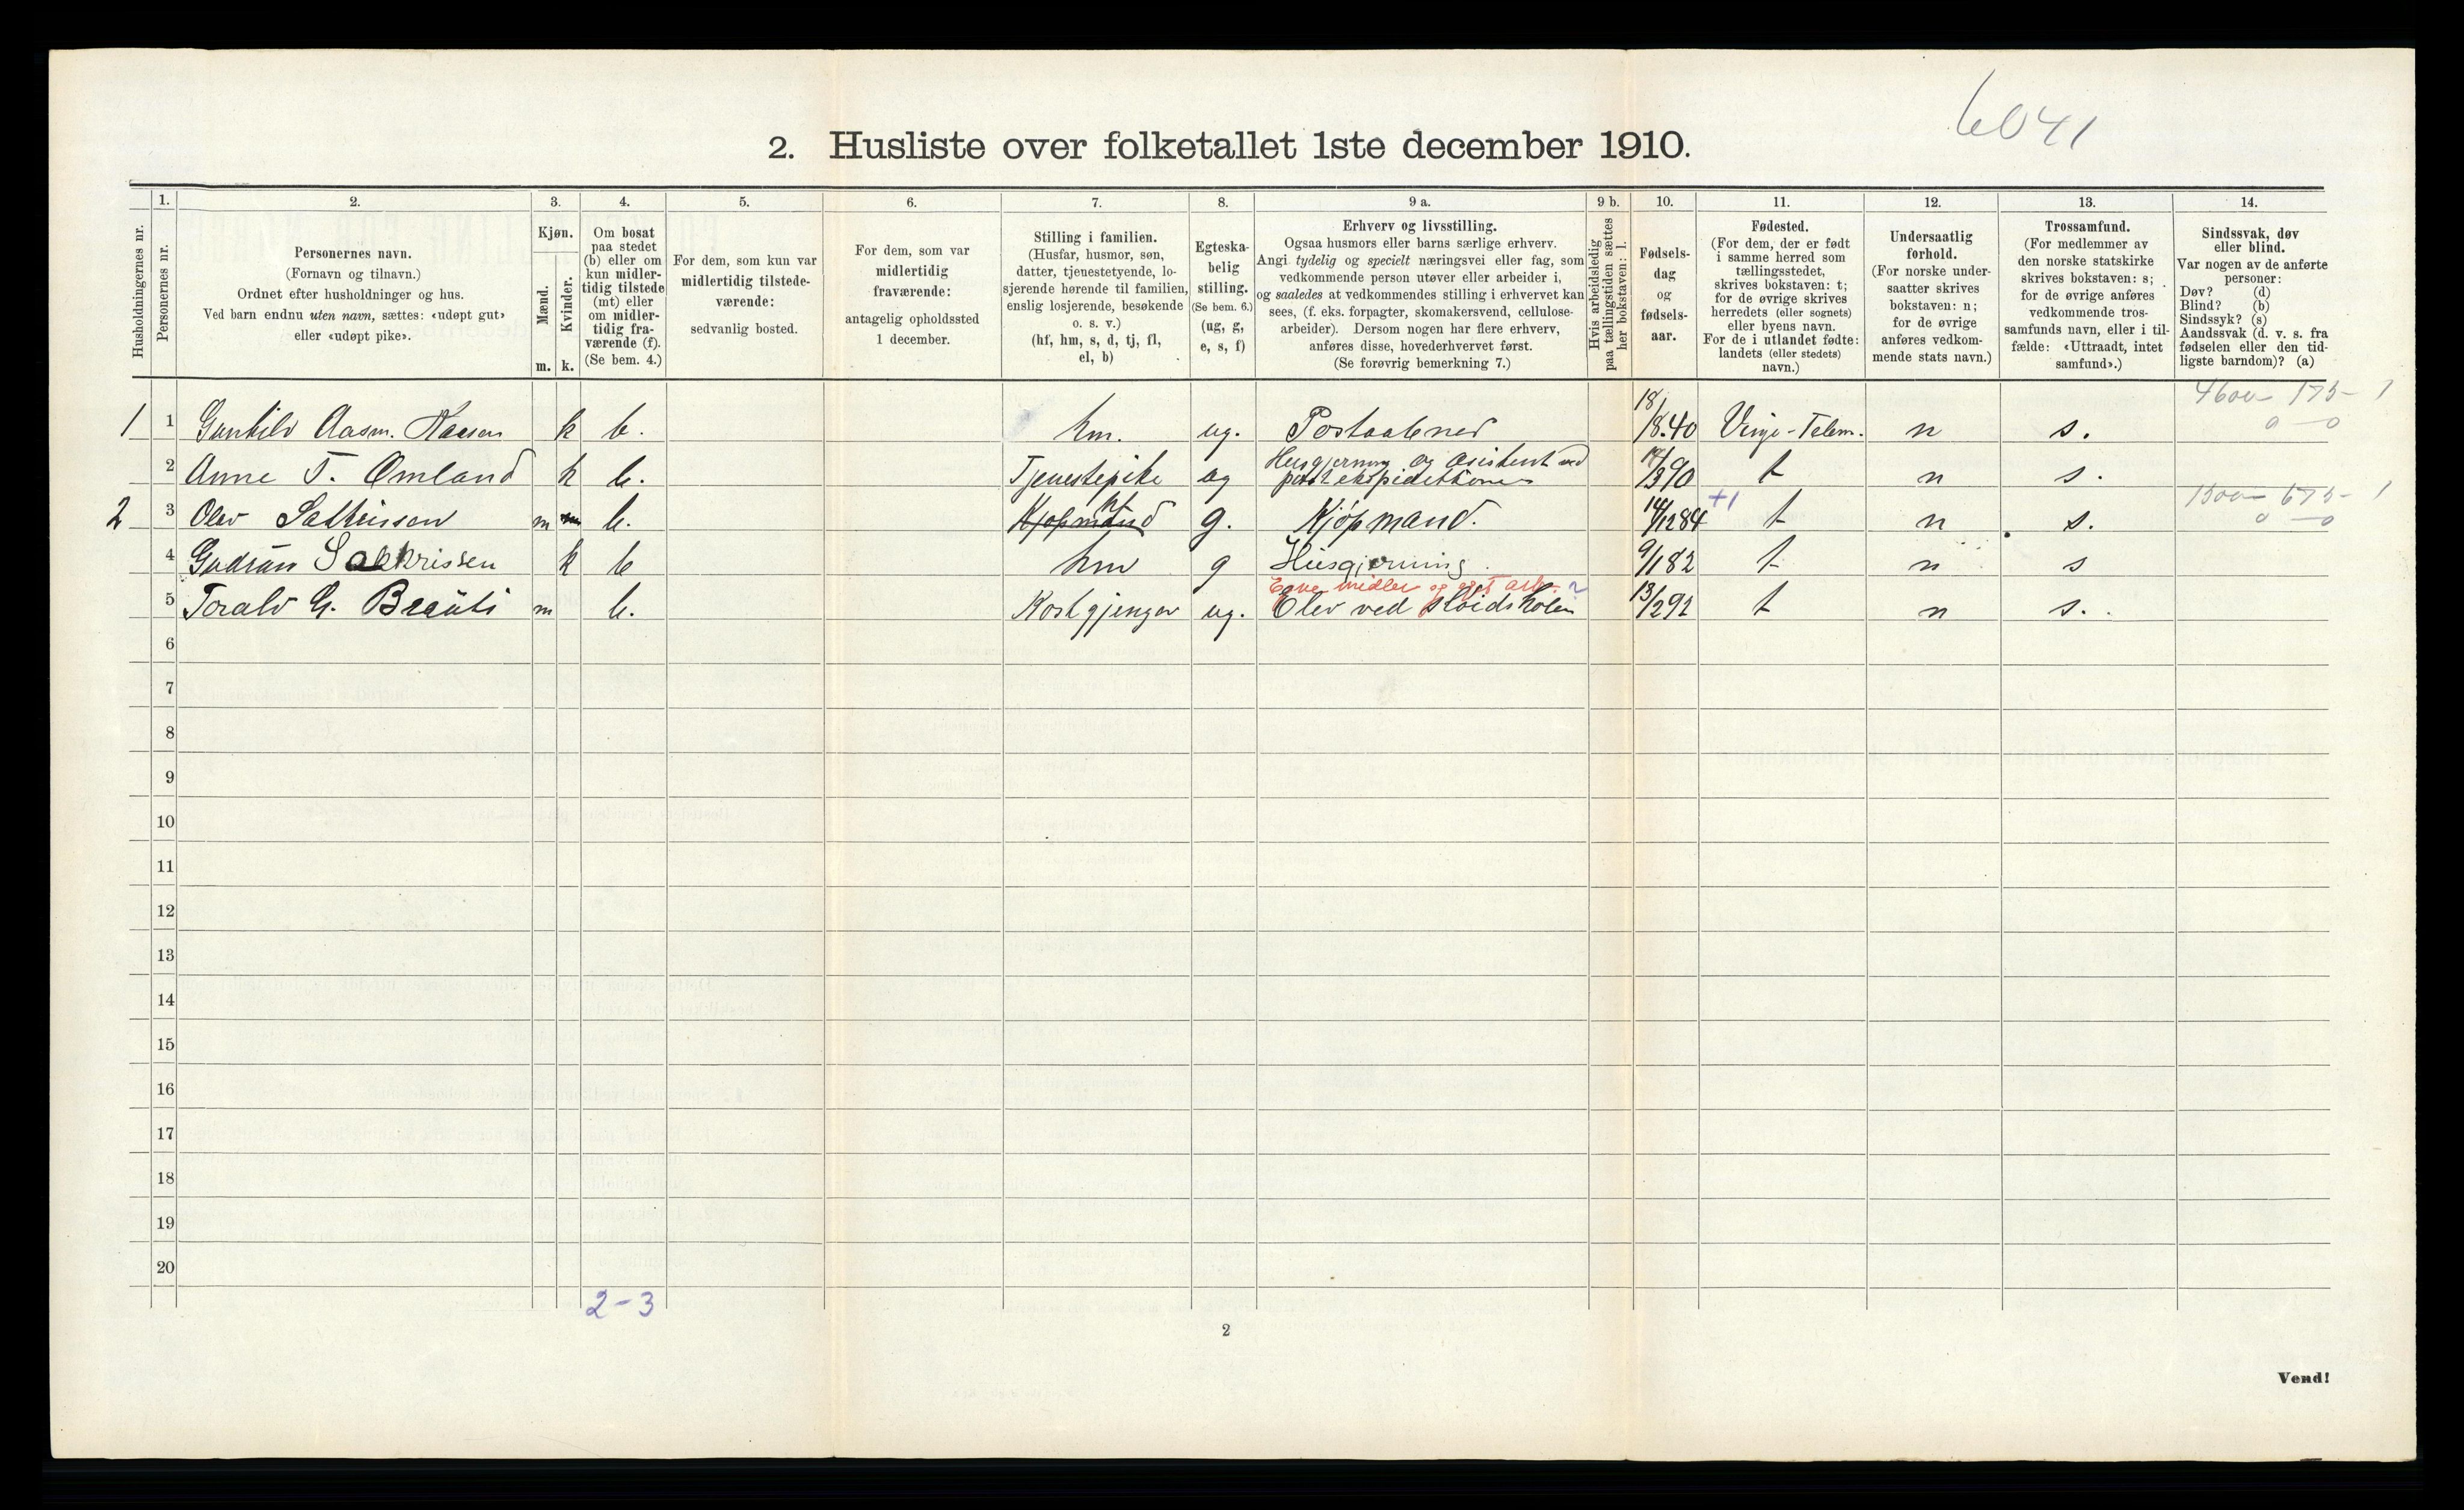 6041
2. Husliste over folketallet 1ste december 1910.
Husholdningernes nr.
1.
Personernes nr.
2.
Personernes navn.
(Fornavn og tilnavn.)
Ordnet efter husholdninger og hus.
Ved barn endnu uten navn, sættes: «udøpt gut»
eller «udøpt pike».
3.
Kjøn.
Mænd.
Kvinder.
m. k.
4.
Om bosat
paa stedet
(b) eller om
kun midler-
tidig tilstede
(mt) eller
om midler-
tidig fra-
værende (f).
(Se bem. 4.)
5.
For dem, som kun var
midlertidig tilstede-
værende:
sedvanlig bosted.
6.
For dem, som var
midlertidig
fraværende:
antagelig opholdssted
1 december.
7.
Stilling i familien.
(Husfar, husmor, søn,
datter, tjenestetyende, lo-
sjerende hørende til familien,
enslig losjerende, besøkende
o. s. v.)
(hf, hm, s, d, tj, fl,
el, b)
8.
Egteska-
belig
stilling.
(Se bem. 6.)
(ug, g,
e, s, f)
9 a.
Erhverv og livsstilling.
Ogsaa husmors eller barns særlige erhverv.
Angi tydelig og specielt næringsvei eller fag, som
vedkommende person utøver eller arbeider i,
og saaledes at vedkommendes stilling i erhvervet kan
sees, (f. eks. forpagter, skomakersvend, cellulose-
arbeider). Dersom nogen har flere erhverv,
anføres disse, hovederhvervet først.
(Se forøvrig bemerkning 7.)
9 b.
Hvis arbeidsledig
paa tællingstiden sættes
her bokstaven: l.
10.
Fødsels-
dag
og
fødsels-
aar.
11.
Fødested.
(For dem, der er født
i samme herred som
tællingsstedet,
skrives bokstaven: t;
for de øvrige skrives
herredets (eller sognets)
eller byens navn.
For de i utlandet fødte:
landets (eller stedets)
navn.)
12.
Undersaatlig
forhold.
(For norske under-
saatter skrives
bokstaven: n;
for de øvrige
anføres vedkom-
mende stats navn.)
13.
Trossamfund.
(For medlemmer av
den norske statskirke
skrives bokstaven: s;
for de øvrige anføres
vedkommende tros-
samfunds navn, eller i til-
fælde: «Uttraadt, intet
samfund».)
14.
Sindssvak, døv
eller blind.
Var nogen av de anførte
personer:
Døv? (d)
Blind? (b)
Sindssyk? (s)
Aandssvak (d. v. s. fra
fødselen eller den tid-
ligste barndom)? (a)
1 1 Gunhild Aasm. k b. hm. ug. Postaabner 18/8.40 Vinje-Telem. n s.
2 Anne T. Omland k b. Tjenestepike ug Husgjerning og Asistent ved
390 t n s.
2 3 Olav m b. Kjøpmand hf g. Kjøpmand. 14/1284 +1 t n s.
4 Gudrun Sakkrissen k b hm g Husgjerning. 9/182 t n s
Egne midler og eget arb. ?
5 Torald G. m b. Kostgjenger ug. Elev ved sløidskolen 13/292 t n s.
6
7
8
9
10
11
12
13
14
15
16
17
18
19
20
2-3
2
Vend!